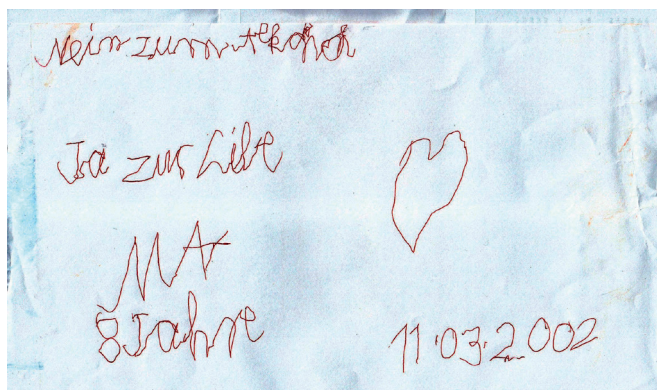 Nein zum
Ja zur Libe
MAX
8 Jahre 11.03.2002